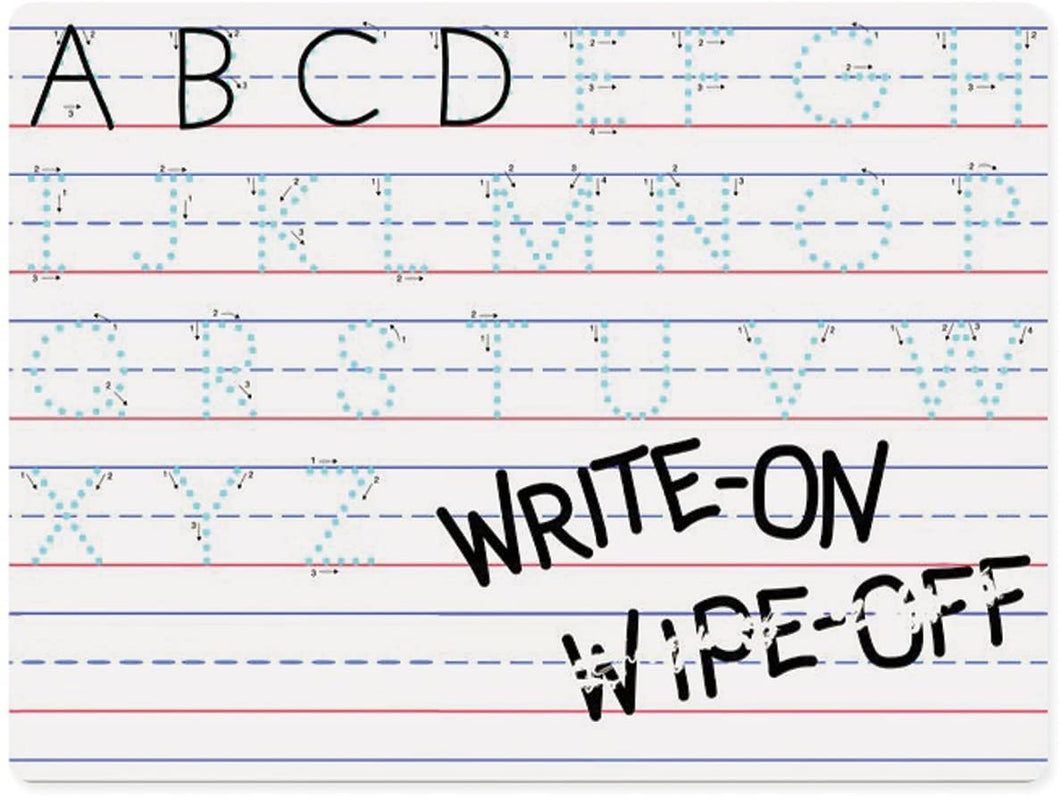 A B C D E F G H
I J K L M N O P
Q R S T U V W
X Y Z
WRITE-ON
WIPE-OFF